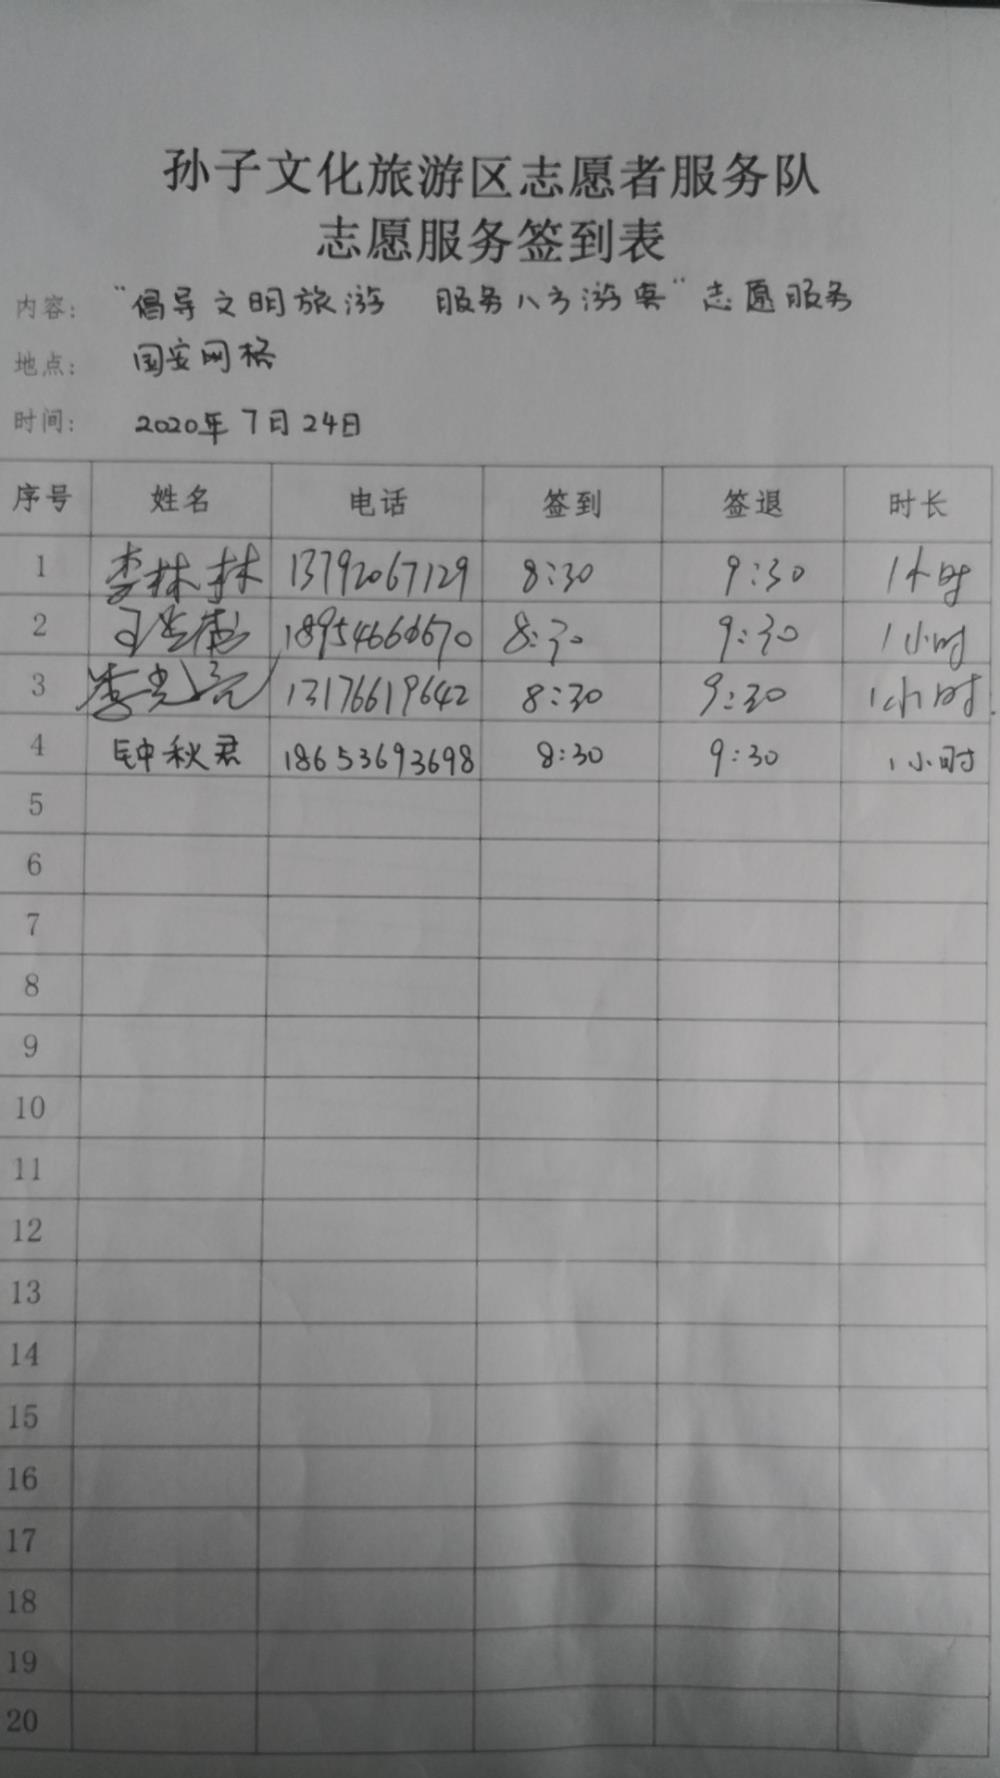 孙子文化旅游区志愿者服务队
志愿服务签到表
内容： “倡导文明旅游 服务八方游客”志愿服务
地点： 国安网格
时间： 2020年7月24日
序号 姓名 电话 签到 签退 时长
1 李林林 13792067129 8:30 9:30 1小时
2 18954666670 8:30 9:30 1小时
3 李光亮 13176619642 8:30 9:30 1小时.
4 钟秋君 18653693698 8:30 9:30 1小时
5
6
7
8
9
10
11
12
13
14
15
16
17
18
19
20